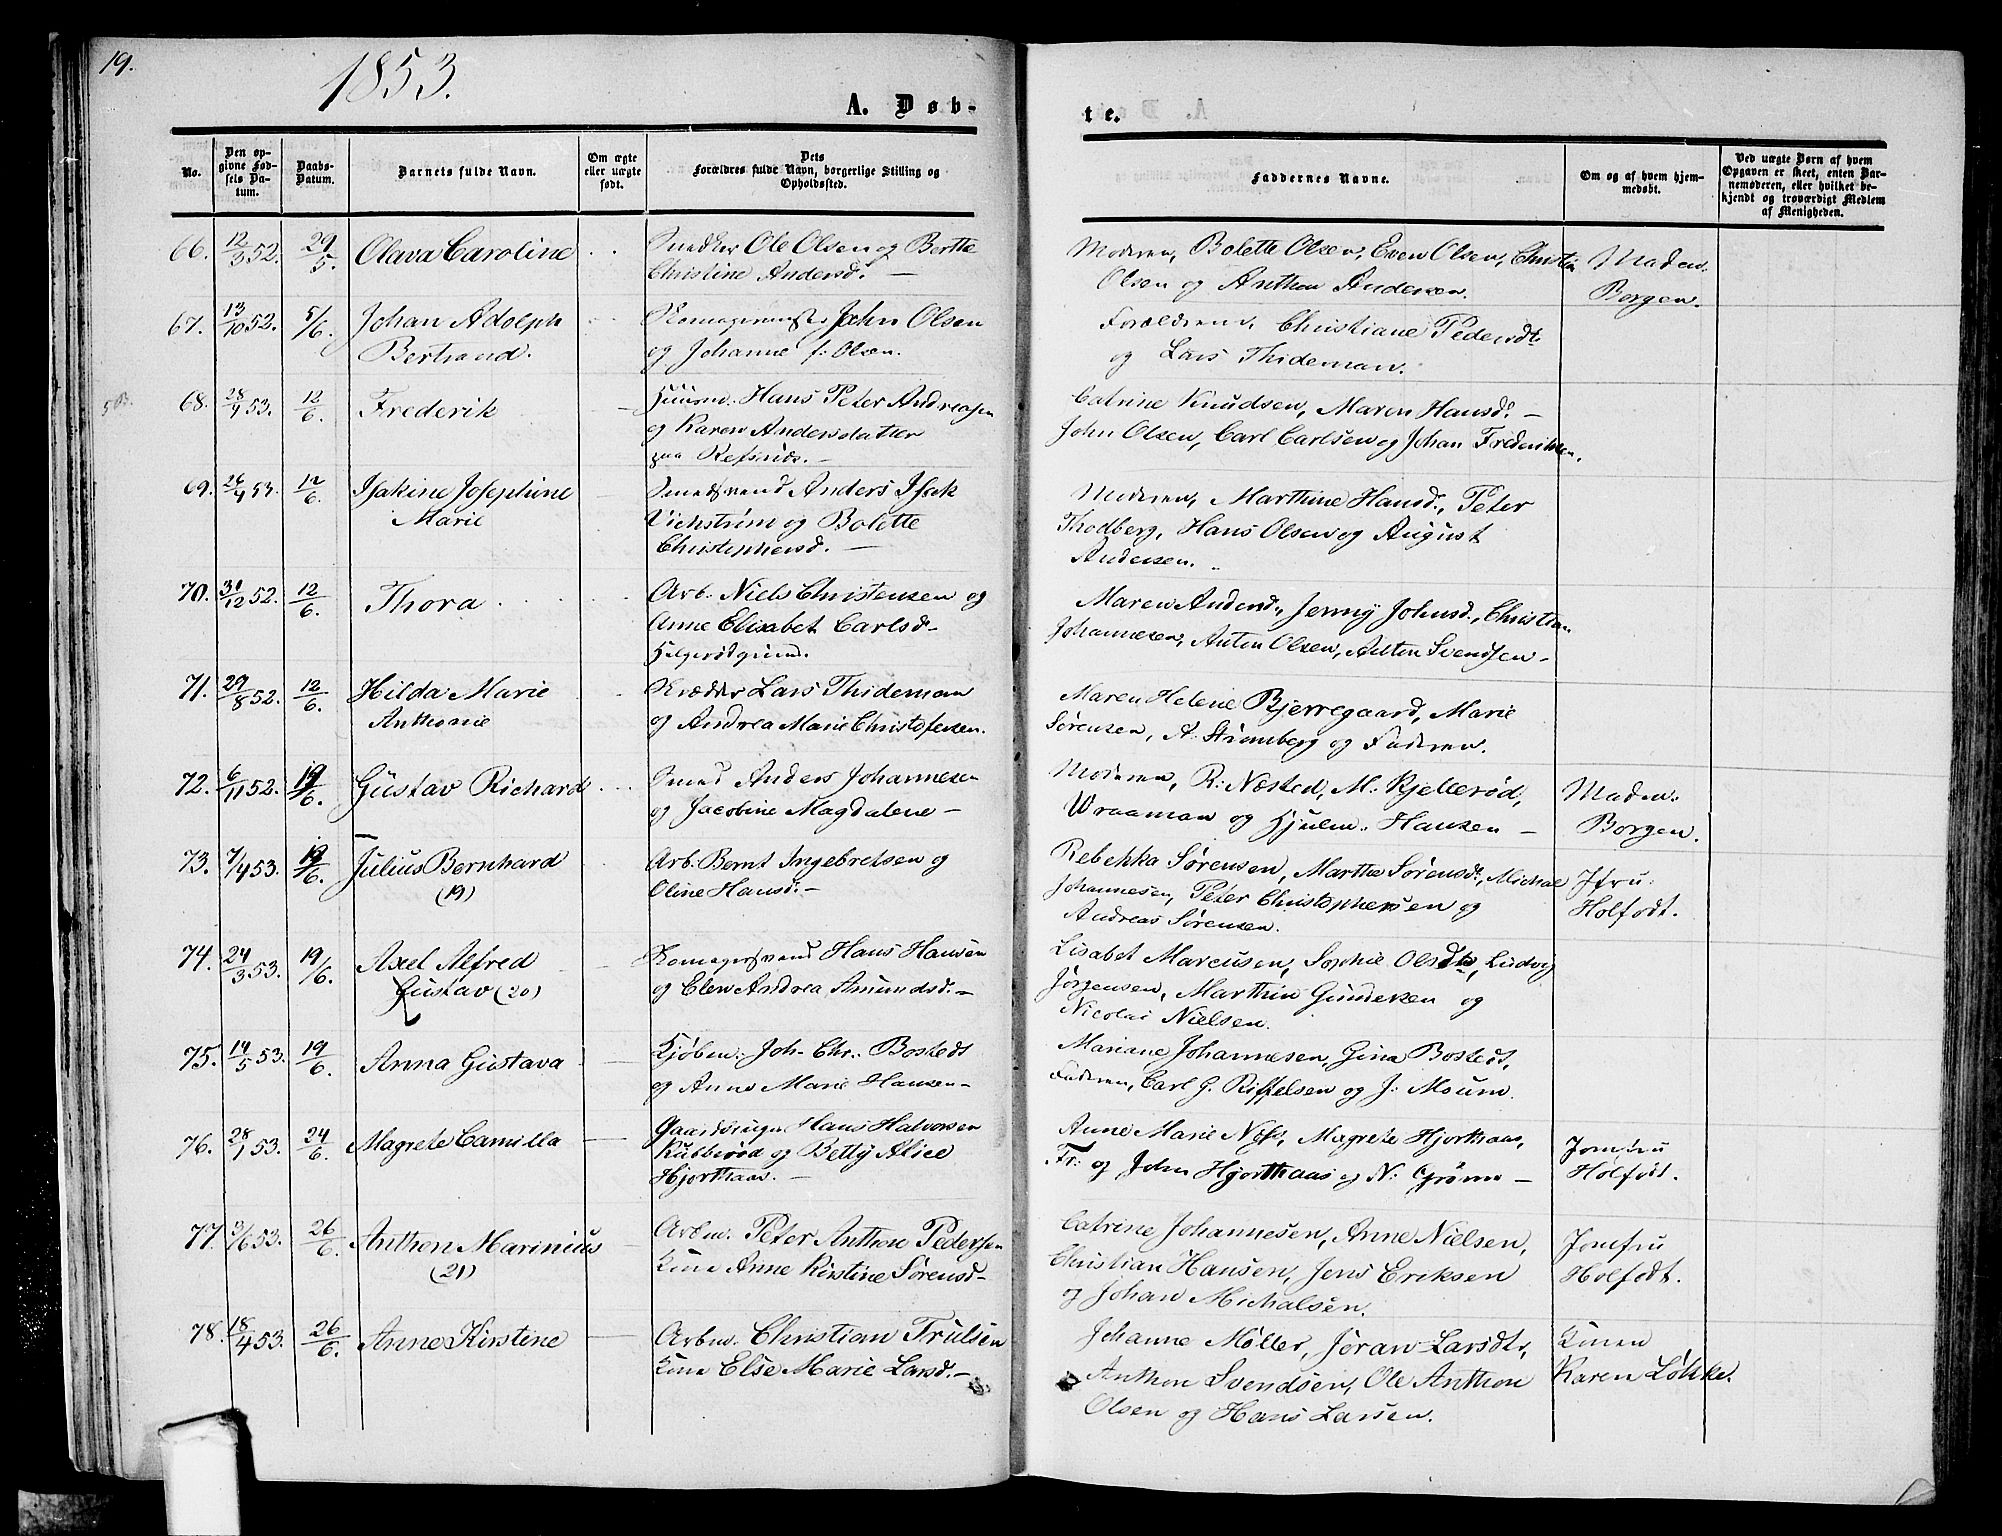 19.
1853.
A. Døb-
te.
No.
Den op-
givne Fød-
sels Da-
tum.
Daabs-
Datum.
Barnets fulde Navn.
Om ægte
eller uægte
født.
Dets
Forældres fulde Navn, borgerlige Stilling og
Opholdssted.
Faddernes Navne.
Om og af hvem hjem-
medøbt.
Ved uægte Børn af hvem
Opgaven er skeet, enten Bar-
nemoderen, eller hvilket be-
kjendt og troværdigt Medlem
af Menigheden.
66. 12/3 52. 29/5. Olava Caroline
Snedker Ole Olsen og Berthe
Christine Andersd. —
Moderen, Bolette Olsen, Even Olsen, Christin
Olsen og Anthon Andersen.
Maden.
Borgen.
67. 13/10 52. 5/6. Johan Adolph
Bertrand.
Skomagermester John Olsen
og Johanne f: Olsen.
Forældrene, Christiane Pedersdt.
og Lars Thideman.
68. 28/1 53. 12/6. Frederik —
Huusm. Hans Peter Andreasen
og Karen Andersdatter
paa Refsnds. —
Catrine Knudsen, Maren Hansd. —
John Olsen, Carl Carlsen og Johan Frederiksen.
69. 26/4 53. 12/6. Isakine Josephine
Marie
Smedsvend Anders Isak
Vichstrøm og Bolette
Christophersd. —
Moderen, Marthine Hansd., Peter
Thodberg, Hans Olsen og August
Andersen.
70. 31/12 52. 12/6. Thora
Arb. Niels Christensen og
Anne Elisabet Carlsd. —
Helgerødgrind.
Maren Andersd., Jenny Johnsd., Christian
Johannesen, Anton Olsen, Anton Svendsen —
71. 29/8 52. 12/6. Hilda Marie
Anthonie
Skrædder Lars Thideman
og Andrea Marie Christofersen.
Maren Helene Bjerregaard, Marie
Sørensen, A. Strømberg og Faderen.
72. 6/11 52. 19/6. Gustav Richard
Smed Anders Johannesen
og Jacobine Magdalene —
Moderen, R: Næsted, M. Kjellerød,
Wraaman og Hjulm. Hansen —
Maden.
Borgen.
73. 7/4 53. 19/6. Julius Bernhard
(19)
Arb. Bernt Ingebretsen og
Oline Hansd. —
Rebekka Sørensen, Marthe Sørensd., Michael
Johannesen, Peter Christophersen og
Andreas Sørensen.
Jfru:
Holfodt.
74. 24/3 53. 19/6. Axel Alfred
Gustav (20)
Skomagersvend Hans Hansen
og Elen Andrea Amundsd. —
Lisabet Marcusen, Sophie Olsdtr, Ludvig
Jørgensen, Marthin Gundersen og
Nicolai Nielsen.
75. 14/5 53. 19/6. Anna Gustava —
Kjøbm. Joh. Chr. Bostedt
og Anne Marie Hansen —
Mariane Johannesen, Gina Bostedt,
Faderen, Carl G. Riffelsen og J. Moum.
76. 28/1 53. 24/6. Magrete Camilla —
Gaardbruger Hans Halvorsen
Kubberød og Betty Alice
Hjorthaas. —
Anne Marie Næss, Magrete Hjorthaas,
Fr: og John Hjorthaas og N. Grønn —
Jomfru
Holfødt.
77. 3/6 53. 26/6. Anthon Marinius —
(21)
Arbm. Peter Anthon Pedersen
Kone Anne Kirstine Sørensd —
Catrine Johannesen, Anne Nielsen,
Christian Hansen, Jens Eriksen
og Johan Michalsen.
Jomfru
Holfodt.
78. 18/4 53. 26/6. Anne Kirstine —
Arbm. Christian Trulsen
Kone Else Marie Larsd. —
Johanne Møller, Jøran Larsdtr,
Anthon Svendsen, Ole Anthon
Olsen og Hans Larsen.
Konen
Karen Løkke.